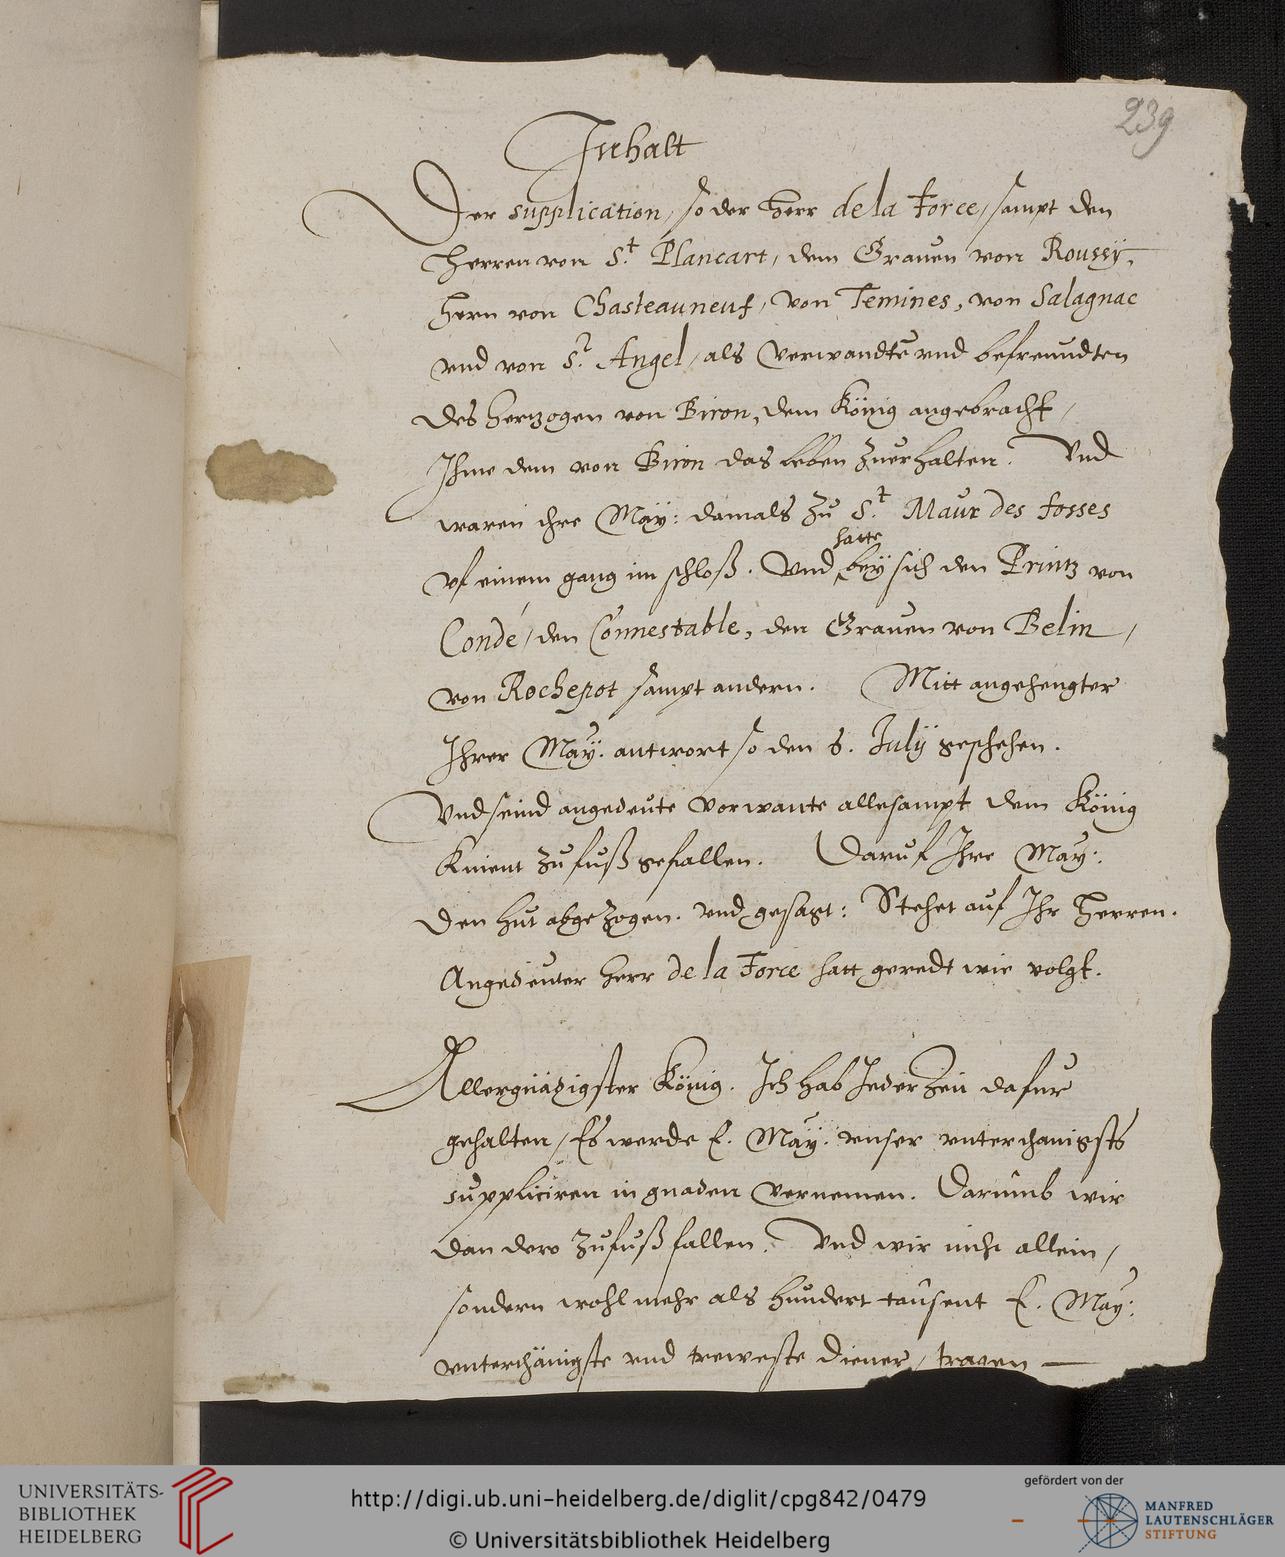 239
Inhalt
Der supplication, so der Herr de la Force, sampt den
Herren von S.t Plancart, dem Grauen von Roussÿ,
Hern von Chasteauneuf, von Temines, von Salagnac
vnd von S.t Angel, als verwandte vnd befreundten
des Hertzogen von Biron, dem König angebracht,
Ihme dem von Biron das leben zuerhalten. Vnd
waren ihre Maÿ: damals zu S.t Maur des fosses
vf einem gang im schloß. Vnd hatte beÿ sich den Printz von
Condé, den Connestable, den Grauen von Belin,
von Rochepot sampt andern. Mitt angehengter
Ihrer Maÿ. antwort so den 6. Julÿ geschehen.
Vnd seind angedeute vorwante allesampt dem König
Knient zu fuß gefallen. Daruf Ihre Maÿ:
den hut abgezogen. vnd gesagt: Stehet auf Ihr Herren.
Angedeuter Herr de la Force hatt geredt wie volgt.
Allergnädigster König. Ich hab Jederzeit dafur
gehalten, Es werde E. Maÿ. vnser vnterthänigsts
suppliciren in gnaden vernemen. Darumb wir
dan dero zu fuß fallen. Vnd wir nicht allein,
sondern wohl mehr als hundert tausent E. Maÿ:
vnterthänigste vnd treweste diener, tragen
UNIVERSITÄTS-
BIBLIOTHEK
HEIDELBERG
http://digi.ub.uni-heidelberg.de/diglit/cpg842/0479
© Universitätsbibliothek Heidelberg
gefördert von der
MANFRED
LAUTENSCHLÄGER
STIFTUNG